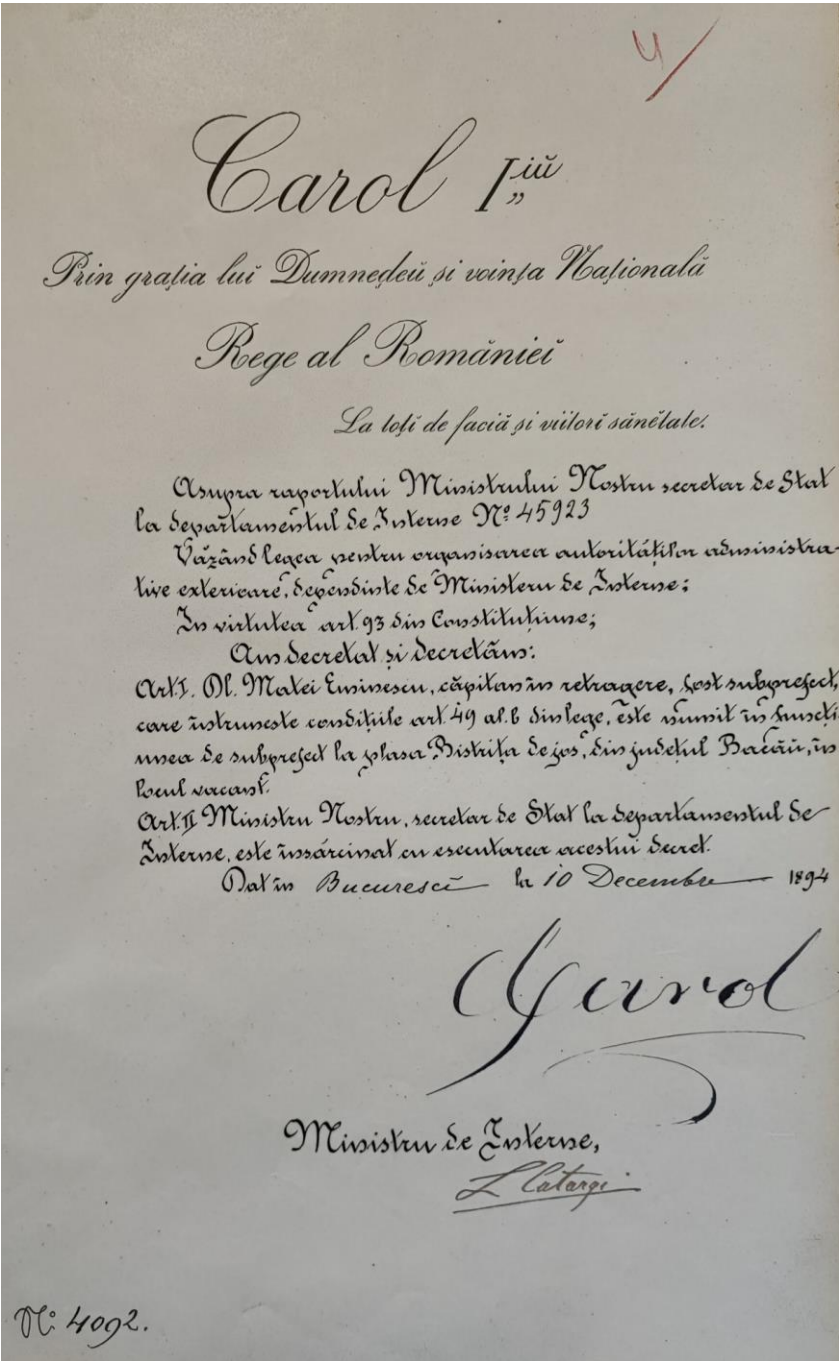 4/
Carol I„iŭ
Prin grația lui Dumnedeŭ și voința Națională
Rege al României
La toți de faciă și viitorĭ sănĕtate.
Asupra raportului Ministrului Nostru secretar de Stat
la departamentul de Interne Nº 45923
Văzând legea pentru organisarea autorităților administra-
tive exterioare, dependinte de Ministeru de Interne;
In virtutea art. 93 din Constituțiune;
Am decretat și decretăm:
Art. I. Dl. Matei Eminescu, căpitan în retragere, fost subprefect,
care întrunește condițiile art. 49 al. b din lege, este numit în funcți
unea de subprefect la plasa Bistrița de jos, din județul Bacău, în
locul vacant.
Art. II Ministru Nostru, secretar de Stat la departamentul de
Interne, este însărcinat cu escutarea acestui decret.
Dat în Bucurescĭ la 10 Decembre 1894
Carol
Ministru de Interne,
L Catargi
Nº 4092.